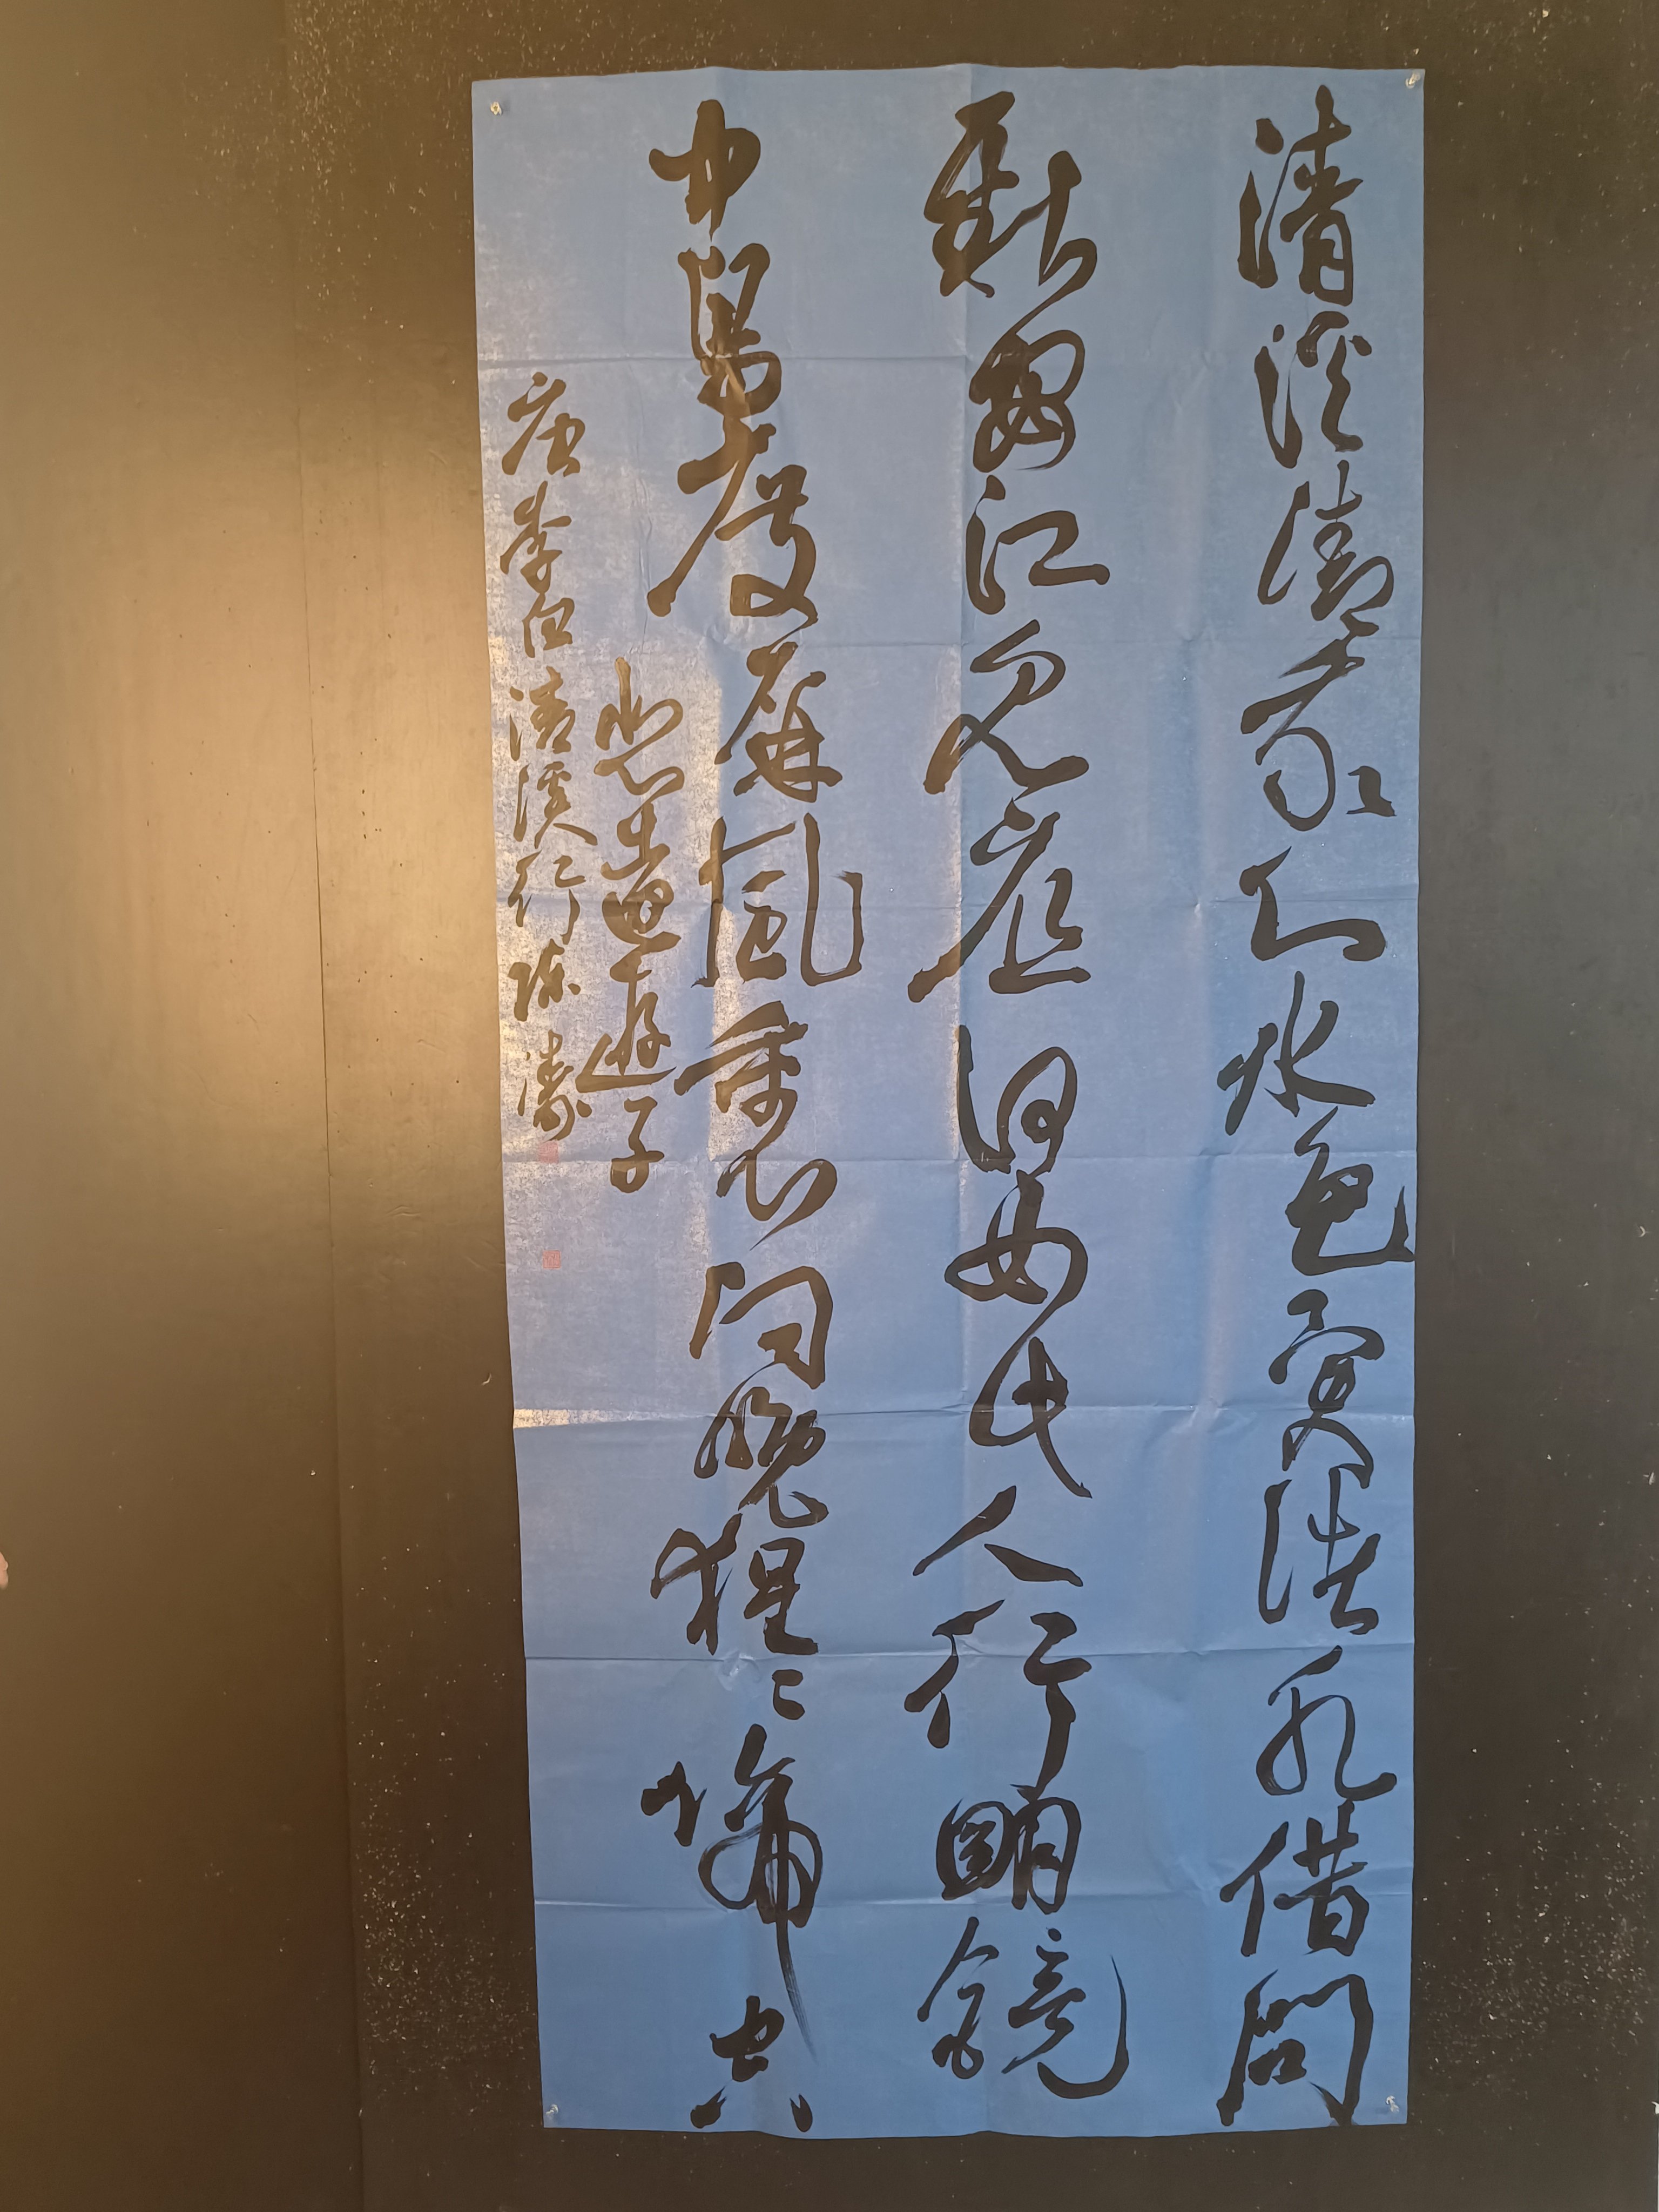 清溪清我心水色異諸水借問
新安江見底何如此人行明鏡
中鳥度屏風裏向晚猩々啼空
悲遠遊子
唐李白清溪行陳濤